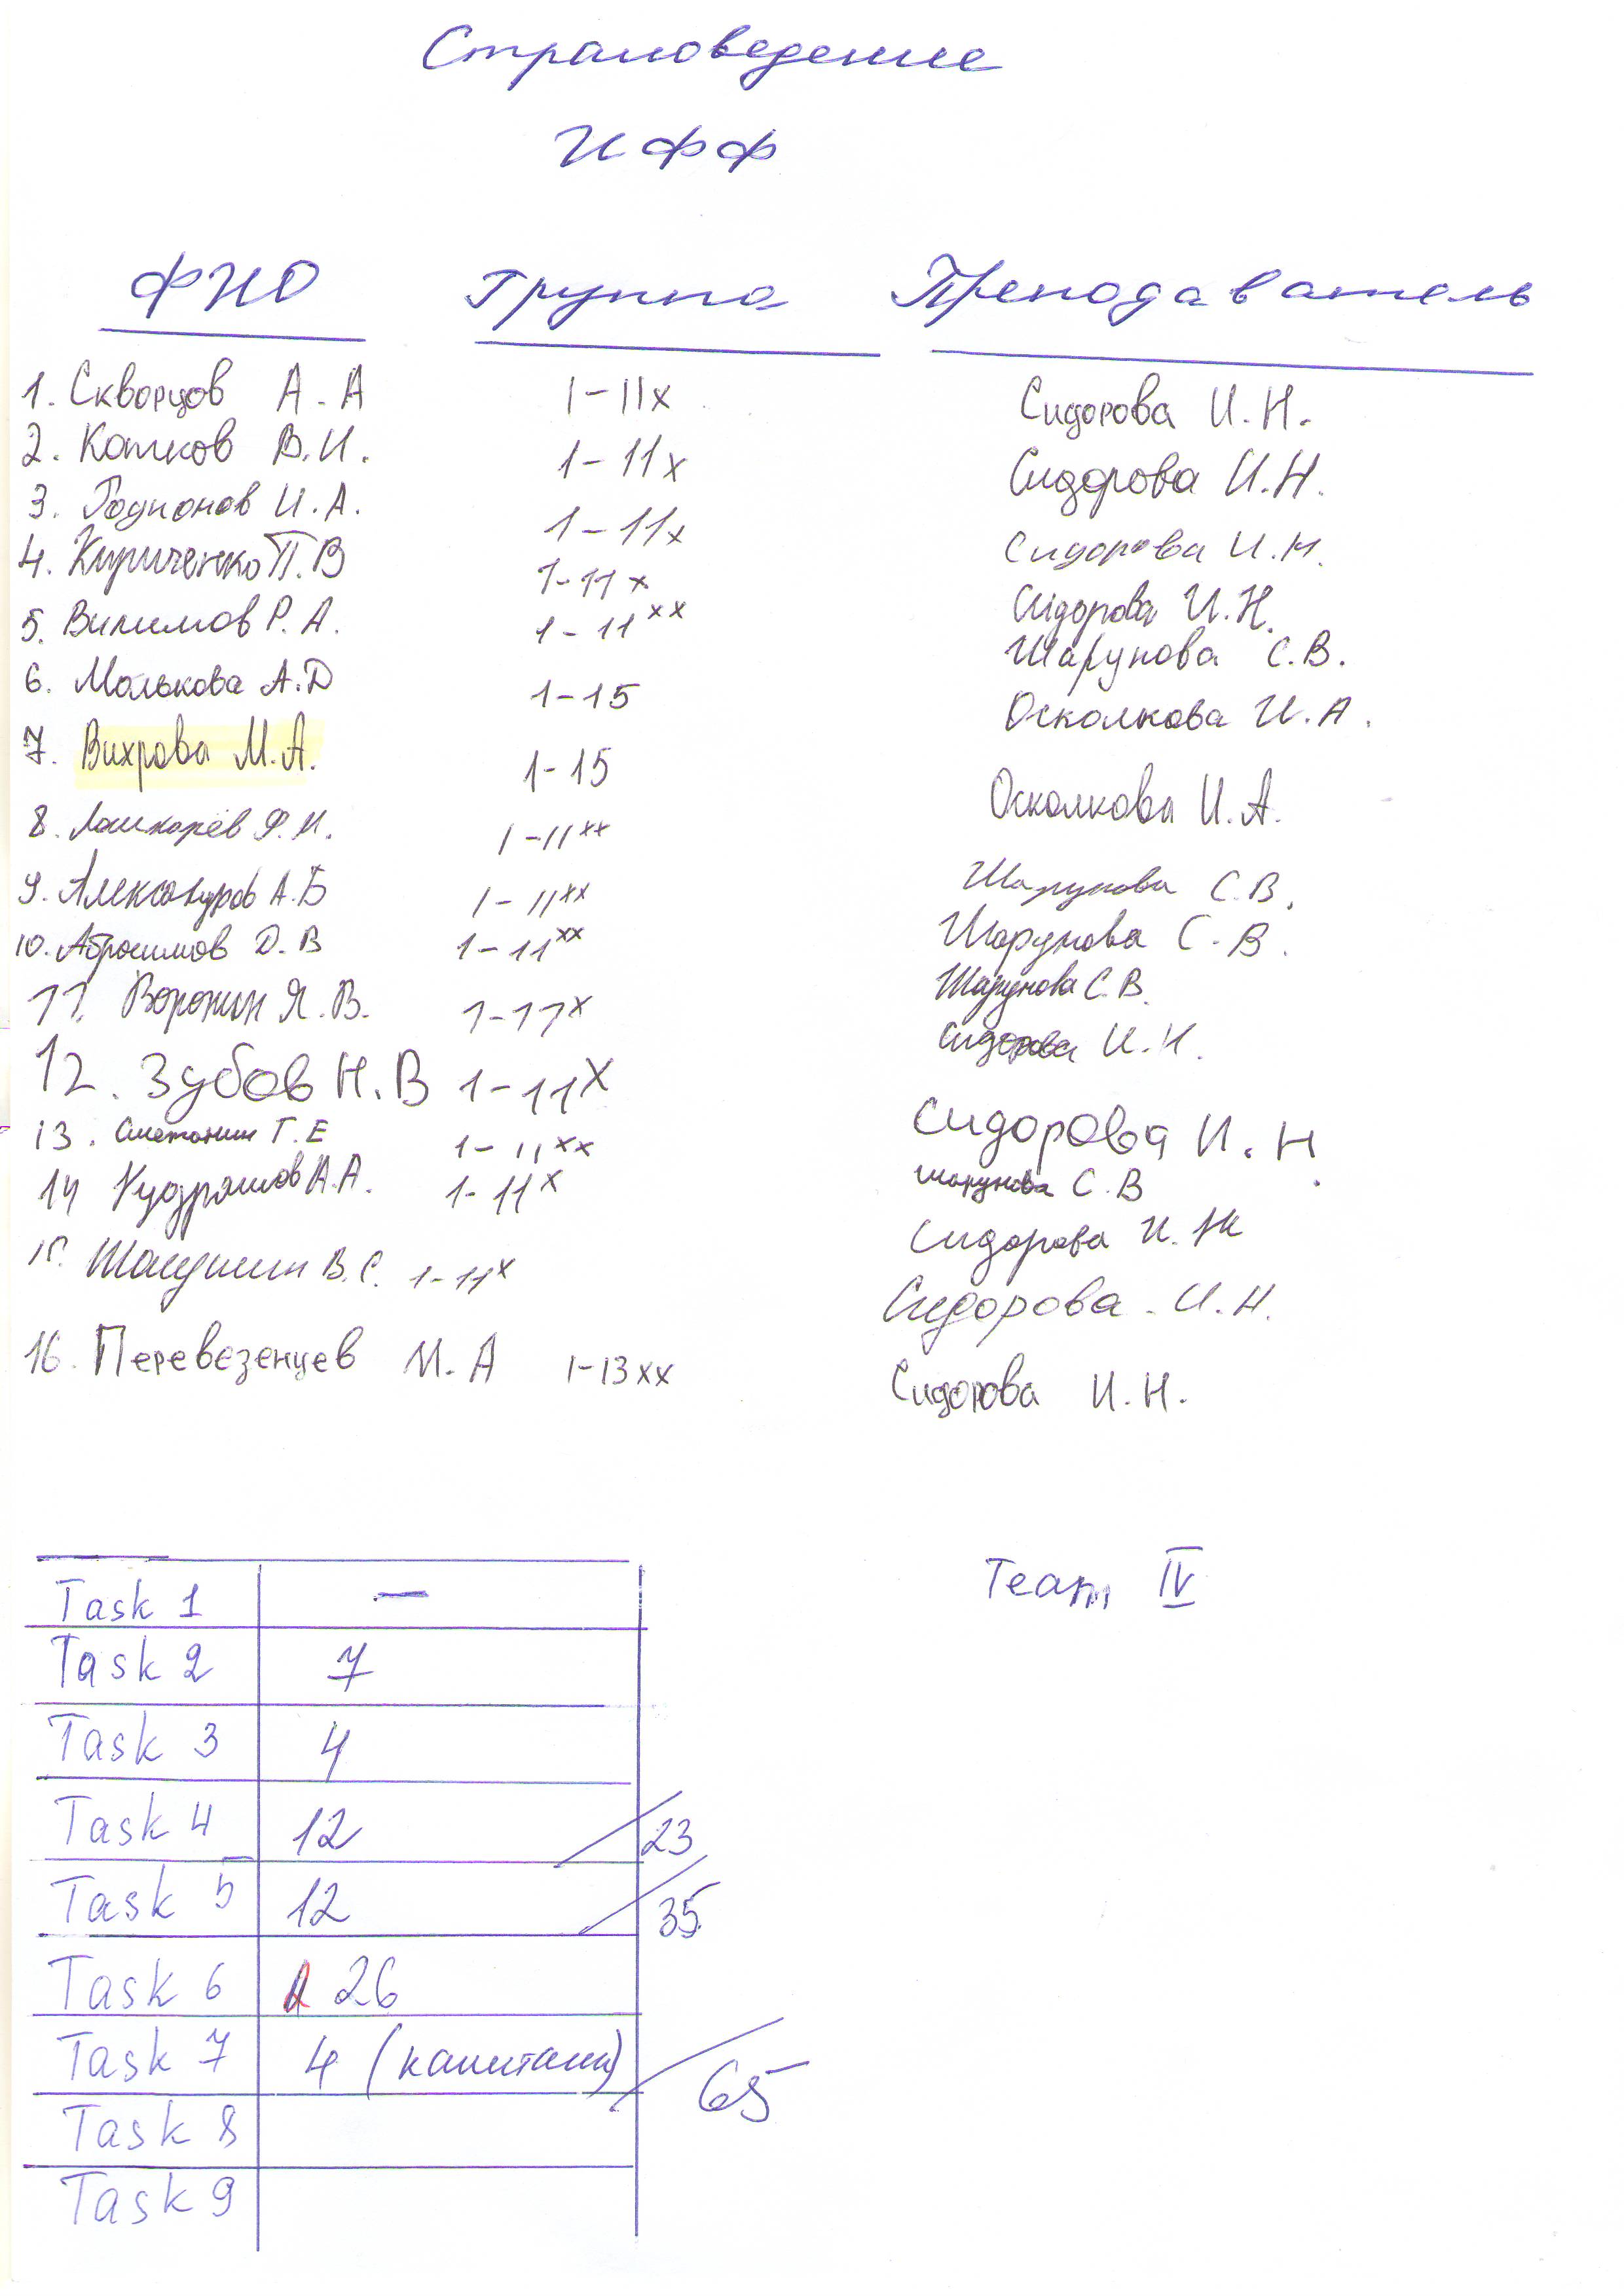 Страноведение
ИФФ
ФИО Группа Преподаватель
1. Скворцов А.А 1-11х Сидорова И.Н.
2. Катков В.И. 1-11х Сидорова И.Н.
3. Родионов И.А. 1-11х Сидорова И.Н.
4. Кириченко П.В 1-11х Сидорова И.Н.
5. Р.А. 1-11хх Шарунова С.В.
6. Молькова А.Д 1-15 Осколкова И.А.
7. Вихрова М.А. 1-15 Осколкова И.А.
8. Лашкарёв Ф.И. 1-11хх Шарунова С.В.
9. Александров А.Б 1-11хх Шарунова С.В.
10. Абросимов Д.В 1-11хх Шарунова С.В.
11. Воронин Я.В. 1-11х Сидорова И.Н.
12. Зубов Н.В 1-11х Сидорова И.Н.
13. Сметанин Г.Е 1-11хх Шарунова С.В
14 Кудряшов А.А. 1-11х Сидорова И.Н
15. В.С. 1-11х Сидорова И.Н.
16. Перевезенцев М.А 1-13хх Сидорова И.Н.
Team IV
Task 1 —
Task 2 7
Task 3 4
Task 4 12 23
Task 5 12 35
Task 6 26
Task 7 4 (капитаны) 65
Task 8
Task 9